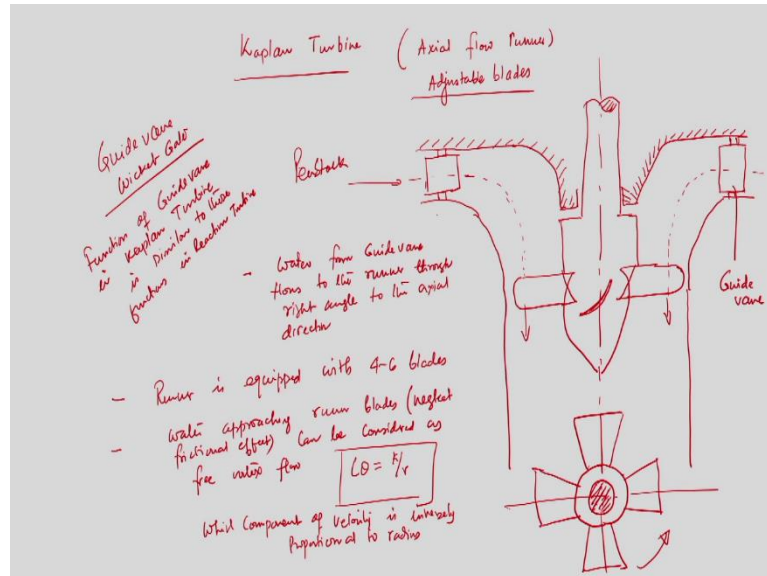 Kaplan Turbine (Axial flow runner)
Adjustable blades
Guide vane
Wicket Gate
Function of Guide vane
in Kaplan Turbine
is similar to those
functions in Reaction Turbine
Penstock
- Water from Guide vane
flows to the runner through
right angle to the axial
direction
- Runner is equipped with 4-6 blades
- Water approaching runner blades (neglect
frictional effect) can be considered as
free vortex flow Cθ = k/r
Whirl Component of velocity is inversely
proportional to radius
Guide
vane